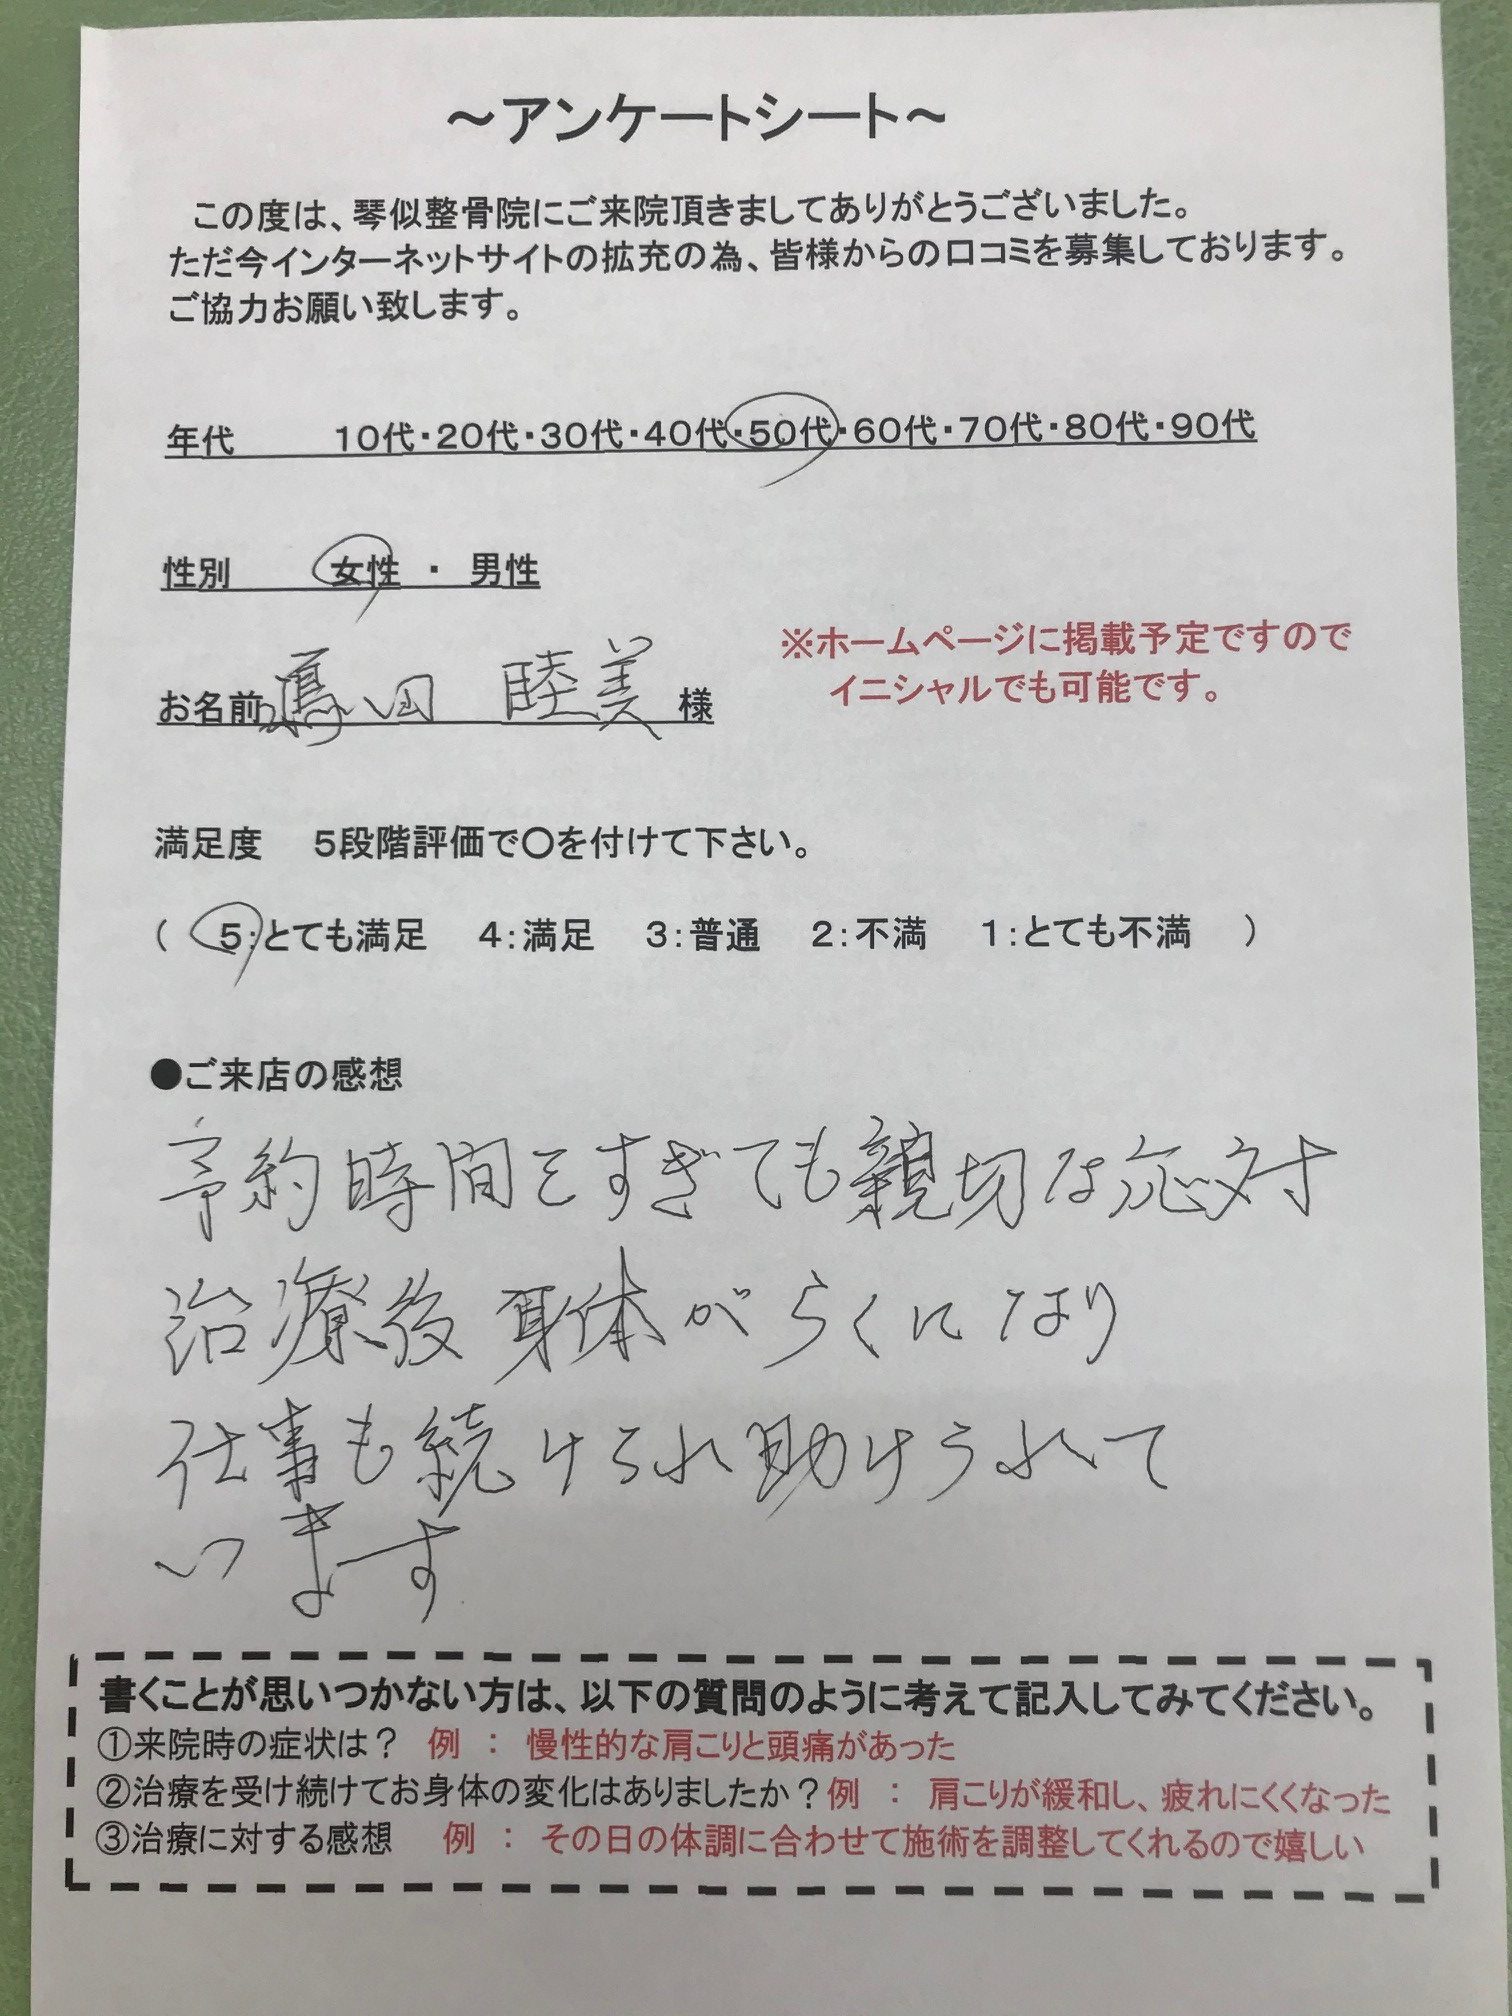 ～アンケートシート～
この度は、琴似整骨院にご来院頂きましてありがとうございました。
ただ今インターネットサイトの拡充の為、皆様からの口コミを募集しております。
ご協力お願い致します。
年代 10代・20代・30代・40代・50代・60代・70代・80代・90代
性別 女性 ・ 男性
お名前 田 睦美 様
※ホームページに掲載予定ですので
イニシャルでも可能です。
満足度 5段階評価で〇を付けて下さい。
( 5:とても満足 4:満足 3:普通 2:不満 1:とても不満 )
●ご来店の感想
予約時間をすぎても親切な応対
治療後身体がらくになり
仕事も続けられ助けられて
います
書くことが思いつかない方は、以下の質問のように考えて記入してみてください。
①来院時の症状は？ 例 ： 慢性的な肩こりと頭痛があった
②治療を受け続けてお身体の変化はありましたか？例 ： 肩こりが緩和し、疲れにくくなった
③治療に対する感想 例 ： その日の体調に合わせて施術を調整してくれるので嬉しい